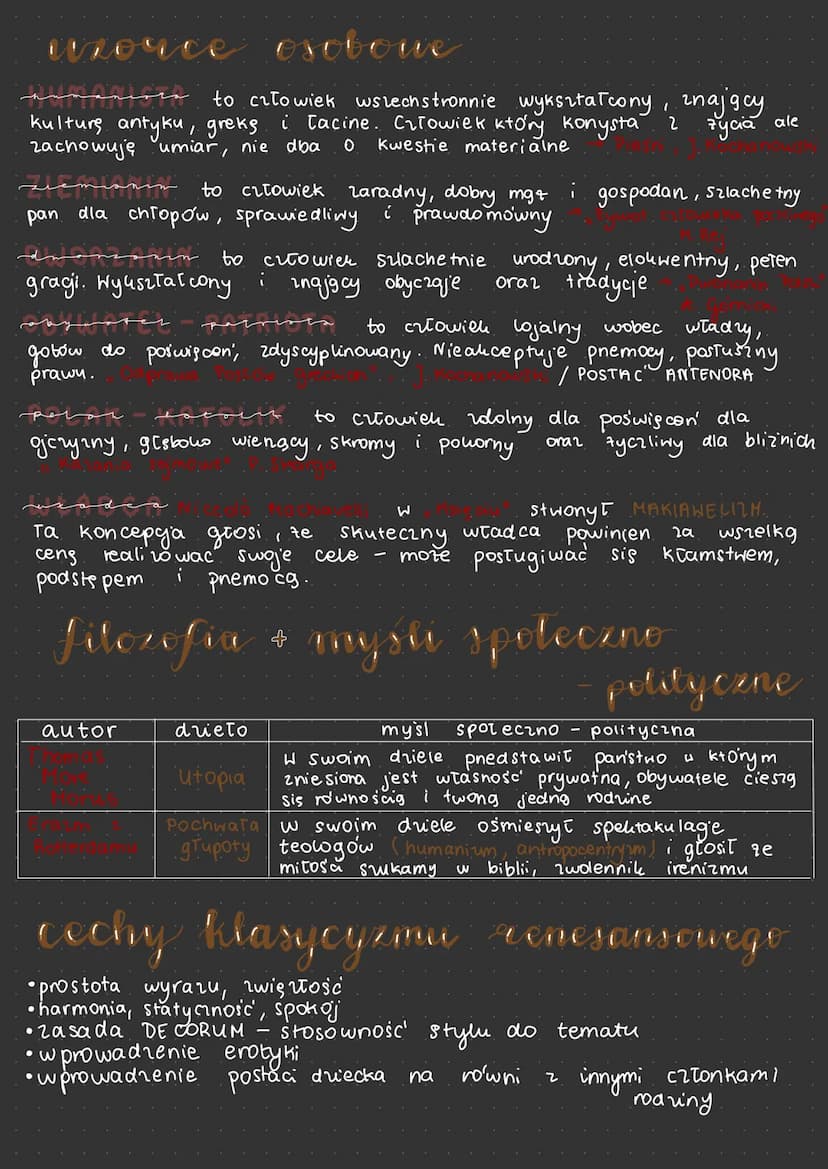 wzorce osobowe
HUMANISTA to człowiek wszechstronnie wykształcony, znający
kulturę antyku, grekę i łacinę. Człowiek który korzysta z życia ale
zachowuję umiar, nie dba o kwestie materialne → "Pieśni", J. Kochanowski
ZIEMIANIN to człowiek zaradny, dobry mąż i gospodarz, szlachetny
pan dla chłopów, sprawiedliwy i prawdomówny → "Żywot człowieka poczciwego"
M. Rej
DWORZANIN to człowiek szlachetnie urodzony, elokwentny, pełen
gracji. Wykształcony i znający obyczaje oraz tradycje → "Dworzanin Polski"
Ł. Górnicki
OBYWATEL - PATRIOTA to człowiek lojalny wobec władzy,
gotów do poświęceń, zdyscyplinowany. Nieakceptuje przemocy, posłuszny
prawu. "Odprawa Posłów Greckich". J. Kochanowski / POSTAĆ ANTENORA
POLAK - KATOLIK to człowiek zdolny dla poświęceń dla
ojczyzny, głęboko wierzący, skromy i pokorny oraz życzliwy dla bliźnich
"Kazania sejmowe" P. Skarga
WŁADCA Niccolò Machiavelli w "Księciu" stworzył MAKIAWELIZM.
Ta koncepcja głosi, że skuteczny władca powinien za wszelką
cenę realizować swoje cele - może posługiwać się kłamstwem,
podstępem i przemocą.
filozofia + myśli społeczno
- polityczne
autor dzieło myśl społeczno - polityczna
Thomas
More
Morus
Utopia
W swoim dziele przedstawił państwo w którym
zniesiona jest własność prywatna, obywatele cieszą
się równością i tworzą jedną rodzinę
Erazm z
Rotterdamu
Pochwała
głupoty
W swoim dziele ośmieszył spektakulację
teologów (humanizm, antropocentryzm) i głosił że
miłości szukamy w biblii, zwolennik irenizmu
cechy klasycyzmu renesansowego
• prostota wyrazu, zwięzłość
• harmonia, statyczność, spokój
• zasada DECORUM - stosowność stylu do tematu
• wprowadzenie erotyki
• wprowadzenie postaci dziecka na równi z innymi członkami
rodziny